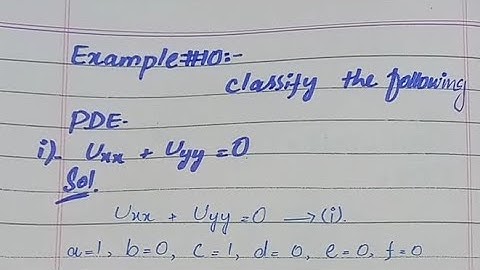 Example#10:-
classify the following
PDE.
i). Uxx + Uyy = 0
Sol.
Uxx + Uyy = 0 → (i).
a=1, b=0, c=1, d=0, e=0, f=0